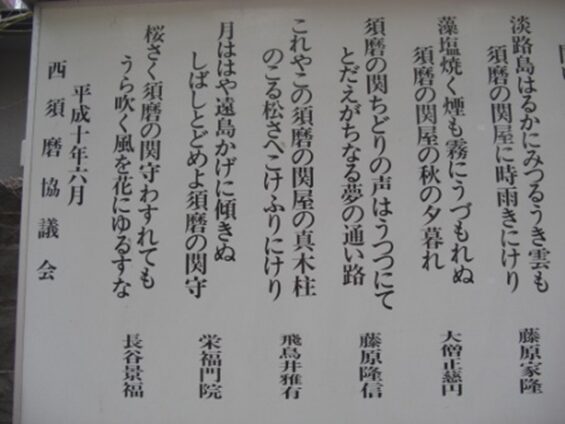 淡路島はるかにみつるうき雲も
須磨の関屋に時雨きにけり
藤原家隆
藻塩焼く煙も霧にうづもれぬ
須磨の関屋の秋の夕暮れ
大僧正慈円
須磨の関ちどりの声はうつつにて
とだえがちなる夢の通い路
藤原隆信
これやこの須磨の関屋の真木柱
のこる松さへこけふりにけり
飛鳥井雅有
月ははや遠島かげに傾きぬ
しばしとどめよ須磨の関守
栄福門院
桜さく須磨の関守わすれても
うら吹く風を花にゆるすな
長谷景福
平成十年六月
西須磨協議会